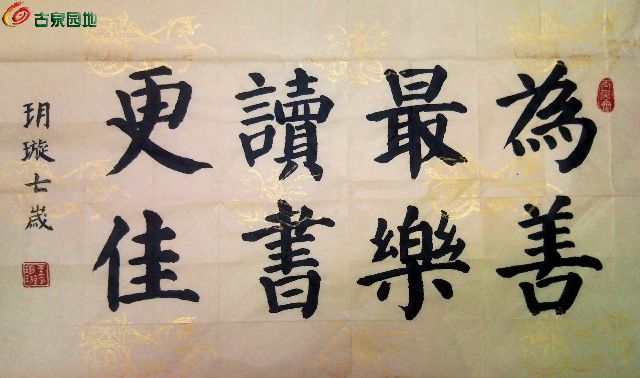 古泉园地
為善
最樂
讀書
更佳
玥璇七歲